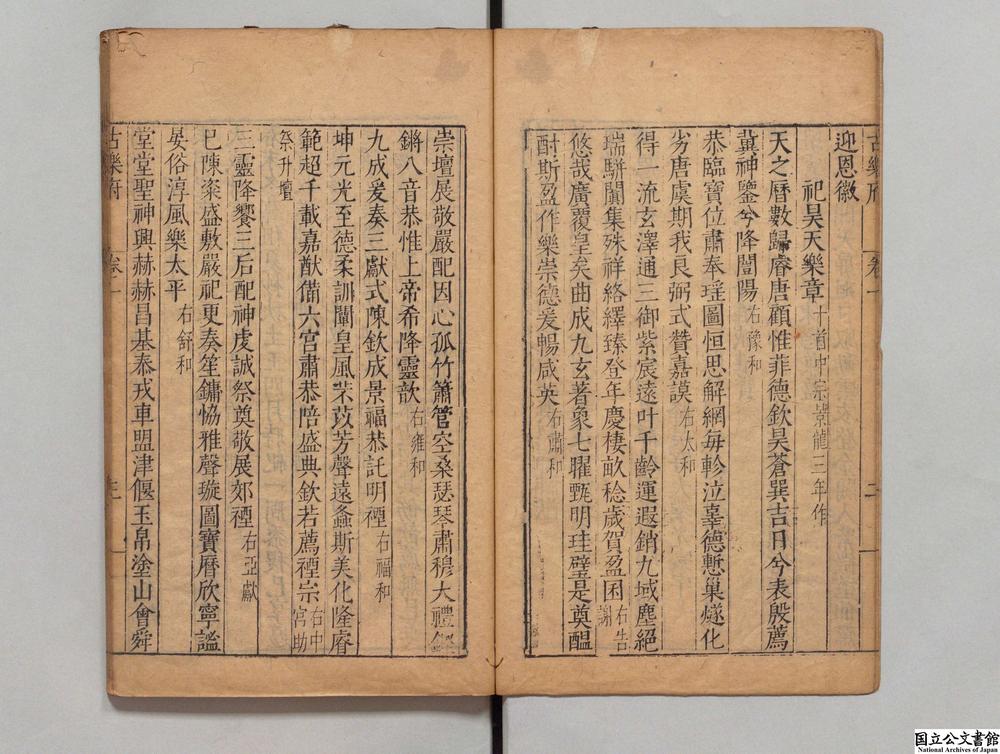 迎恩徽
祀昊天樂章十首中宗景龍三年作
天之曆數歸睿唐顧惟菲德欽昊蒼巽吉日兮表殷薦
冀神鑒兮降闓陽右豫和
恭臨寶位肅奉瑤圖恒思解網毎軫泣辜德慙巢燧化
劣唐虞期我良弼式贊嘉謨右太和
得一流玄澤通三御紫宸遠叶千齡運遐銷九域塵絕
瑞駢闐集殊祥絡繹臻登年慶棲畝稔歲賀盈囷右告謝
悠哉廣覆皇矣曲成九玄著象七曜甄明珪璧是奠醖
酎斯盈作樂崇德爰暢咸英右肅和
古樂府 卷一 二
崇壇展敬嚴配因心孤竹簫管空桑瑟琴肅穆大禮鏗
鏘八音恭惟上帝希降靈歆右雍和
九成爰奏三獻式陳欽成景福恭託明禋右福和
坤元光至德柔訓闡皇風芣苡芳聲遠螽斯美化隆睿
範超千載嘉猷備六宮肅恭陪盛典欽若薦禋宗右中宮助
祭升壇
三靈降饗三后配神虔誠祭奠敬展郊禋右亞獻
已陳粢盛敷嚴祀更奏笙鏞恊雅聲璇圖寶曆欣寧謐
晏俗淳風樂太平右舒和
堂堂聖神興赫赫昌基泰戎車盟津偃玉帛塗山會舜
古樂府 卷一
国立公文書館
National Archives of Japan